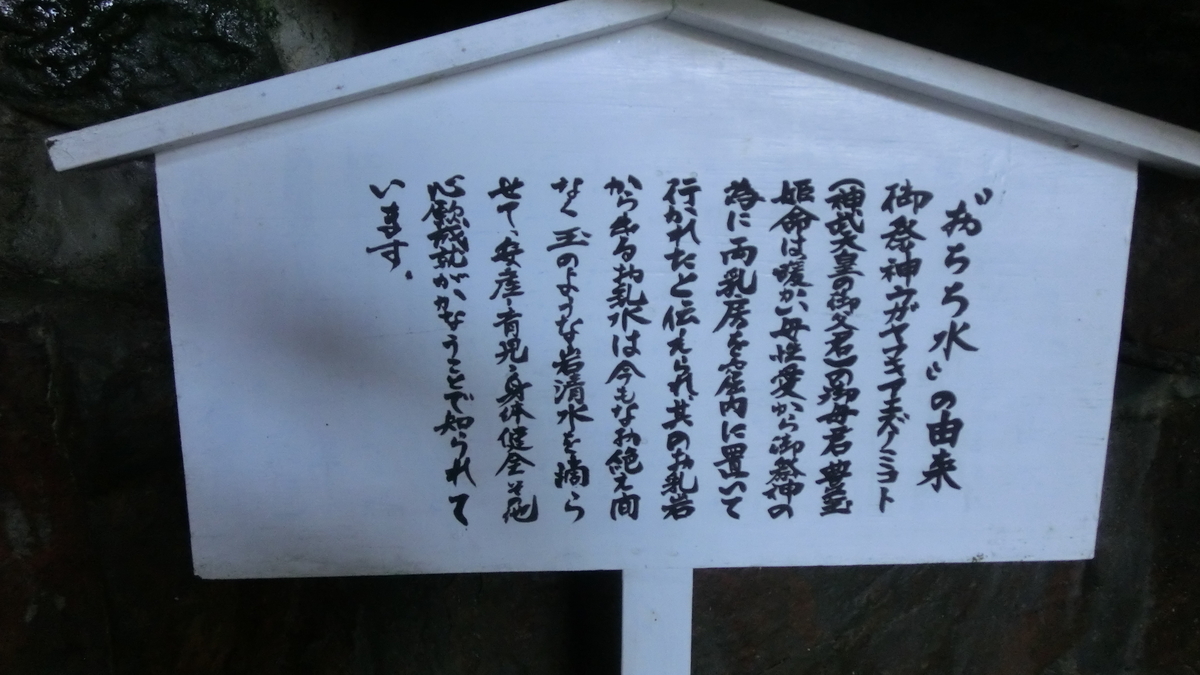 〝おちち水〟の由来
御祭神ウガヤフキアエズノミコト
(神武天皇の御父君)の御母君 豊玉
姫命は暖かい母性愛から御祭神の
為に両乳房を窟内に置いて
行かれたと伝えられ其のお乳岩
から出るお乳水は今もなお絶え間
なく玉のような岩清水を滴ら
せて、安産、育児、身体健全その他
心願成就がかなうことで知られて
います。